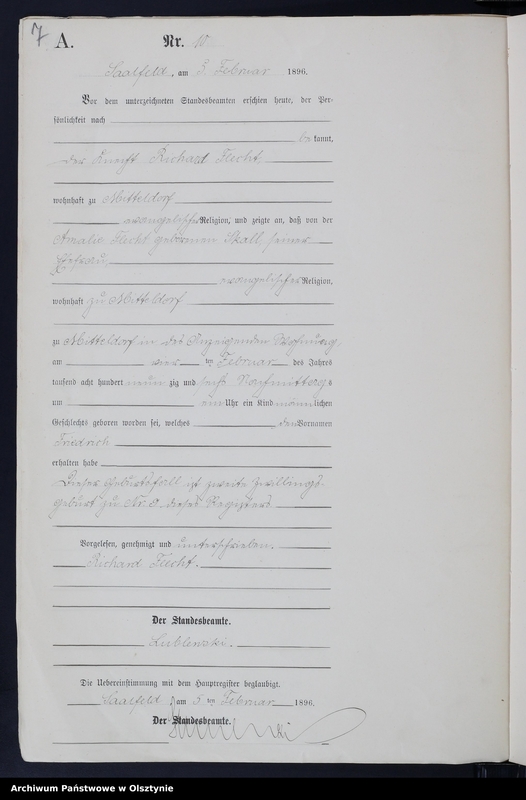 7
A.
Nr. 10
Saalfeld, am 5. Februar 1896.
Vor dem unterzeichneten Standesbeamten erschien heute, der Per-
sönlichkeit nach
be kannt,
der Knecht Richard Flecht
wohnhaft zu Mitteldorf
evangelischer Religion, und zeigte an, daß von der
Amalie Flecht geborenen Skall, seiner
Ehefrau,
evangelischer Religion,
wohnhaft zu Mitteldorf
zu Mitteldorf in des Anzeigenden Wohnung,
am vier ten Februar des Jahres
tausend acht hundert neun zig und sechs Nachmittags
um ein Uhr ein Kind männlichen
Geschlechts geboren worden sei, welches den Vornamen
Friedrich
erhalten habe
Dieser Geburtsfall ist zweite Zwillings-
geburt zu Nr. 9 dieses Registers
Vorgelesen, genehmigt und unterschrieben.
Richard Flecht.
Der Standesbeamte.
Lublewski.
Die Uebereinstimmung mit dem Hauptregister beglaubigt.
Saalfeld, am 5 ten Februar 1896.
Der Standesbeamte.
Archiwum Państwowe w Olsztynie